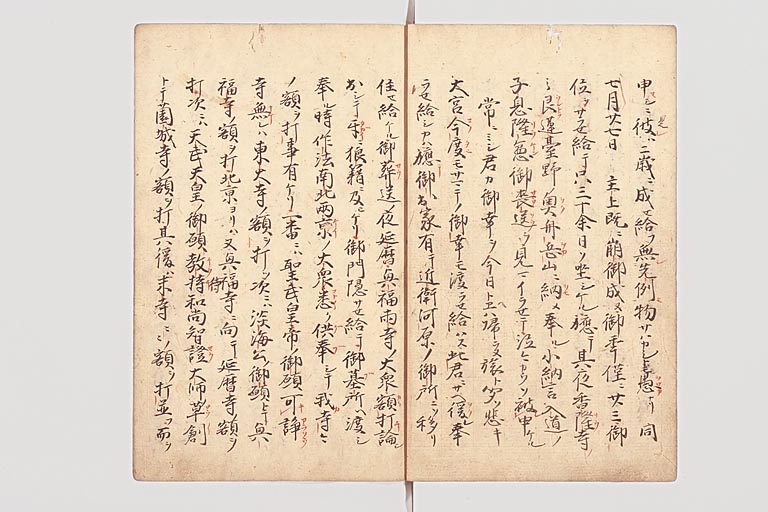 申シヽ彼ハ二歳ニ成セ給フ無先例物サハカシ愚ナリ同
七月廿七日 主上既ニ崩御成ヌ御年僅ニ廿三御
位ヲサセ給テ只三十余日ソ坐シケル応テ其夜香隆寺
ノ艮蓮臺野ノ奥舟岳山ニ納メ奉ル小納言入道ノ
子息隆憲御喪送ヲ見マイラセテ泣ヒトカクソ被申ケル
常ニミシ君カ御幸ヲ今日上ハ帰ラヌ旅ト聞ソ悲キ
大宮今度モサニテノ御幸モ渡ラセ給ハス此君ニサヘ後レ奉
ラセ給シカハ応御出家有テ近衛河原ノ御所ニソ移リ
住セ給ケル御葬送ノ夜延暦興福両寺ノ大衆額打論
出シテ互狼籍ニ及ヒケリ御門隠サセ給テ御墓所ヘ渡シ
奉ル時作法南北両京ノ大衆悉ク供奉シテ我寺ニ
ノ額ヲ打事有ケリ一番ニハ聖武皇帝ノ御願可諍
寺無レハ東大寺ノ額ヲ打ツ次ニハ淡海公ノ御願トテ興
福寺ノ額ヲ打北京ヨリハ又興福寺ニ向テ延暦寺ノ額ヲ
打次ニハ天武天皇ノ御願教待和尚智證大師ノ草創
トテ薗城寺ノ額ヲ打其後末寺ニノ額ヲ打並ヘ而ヲ